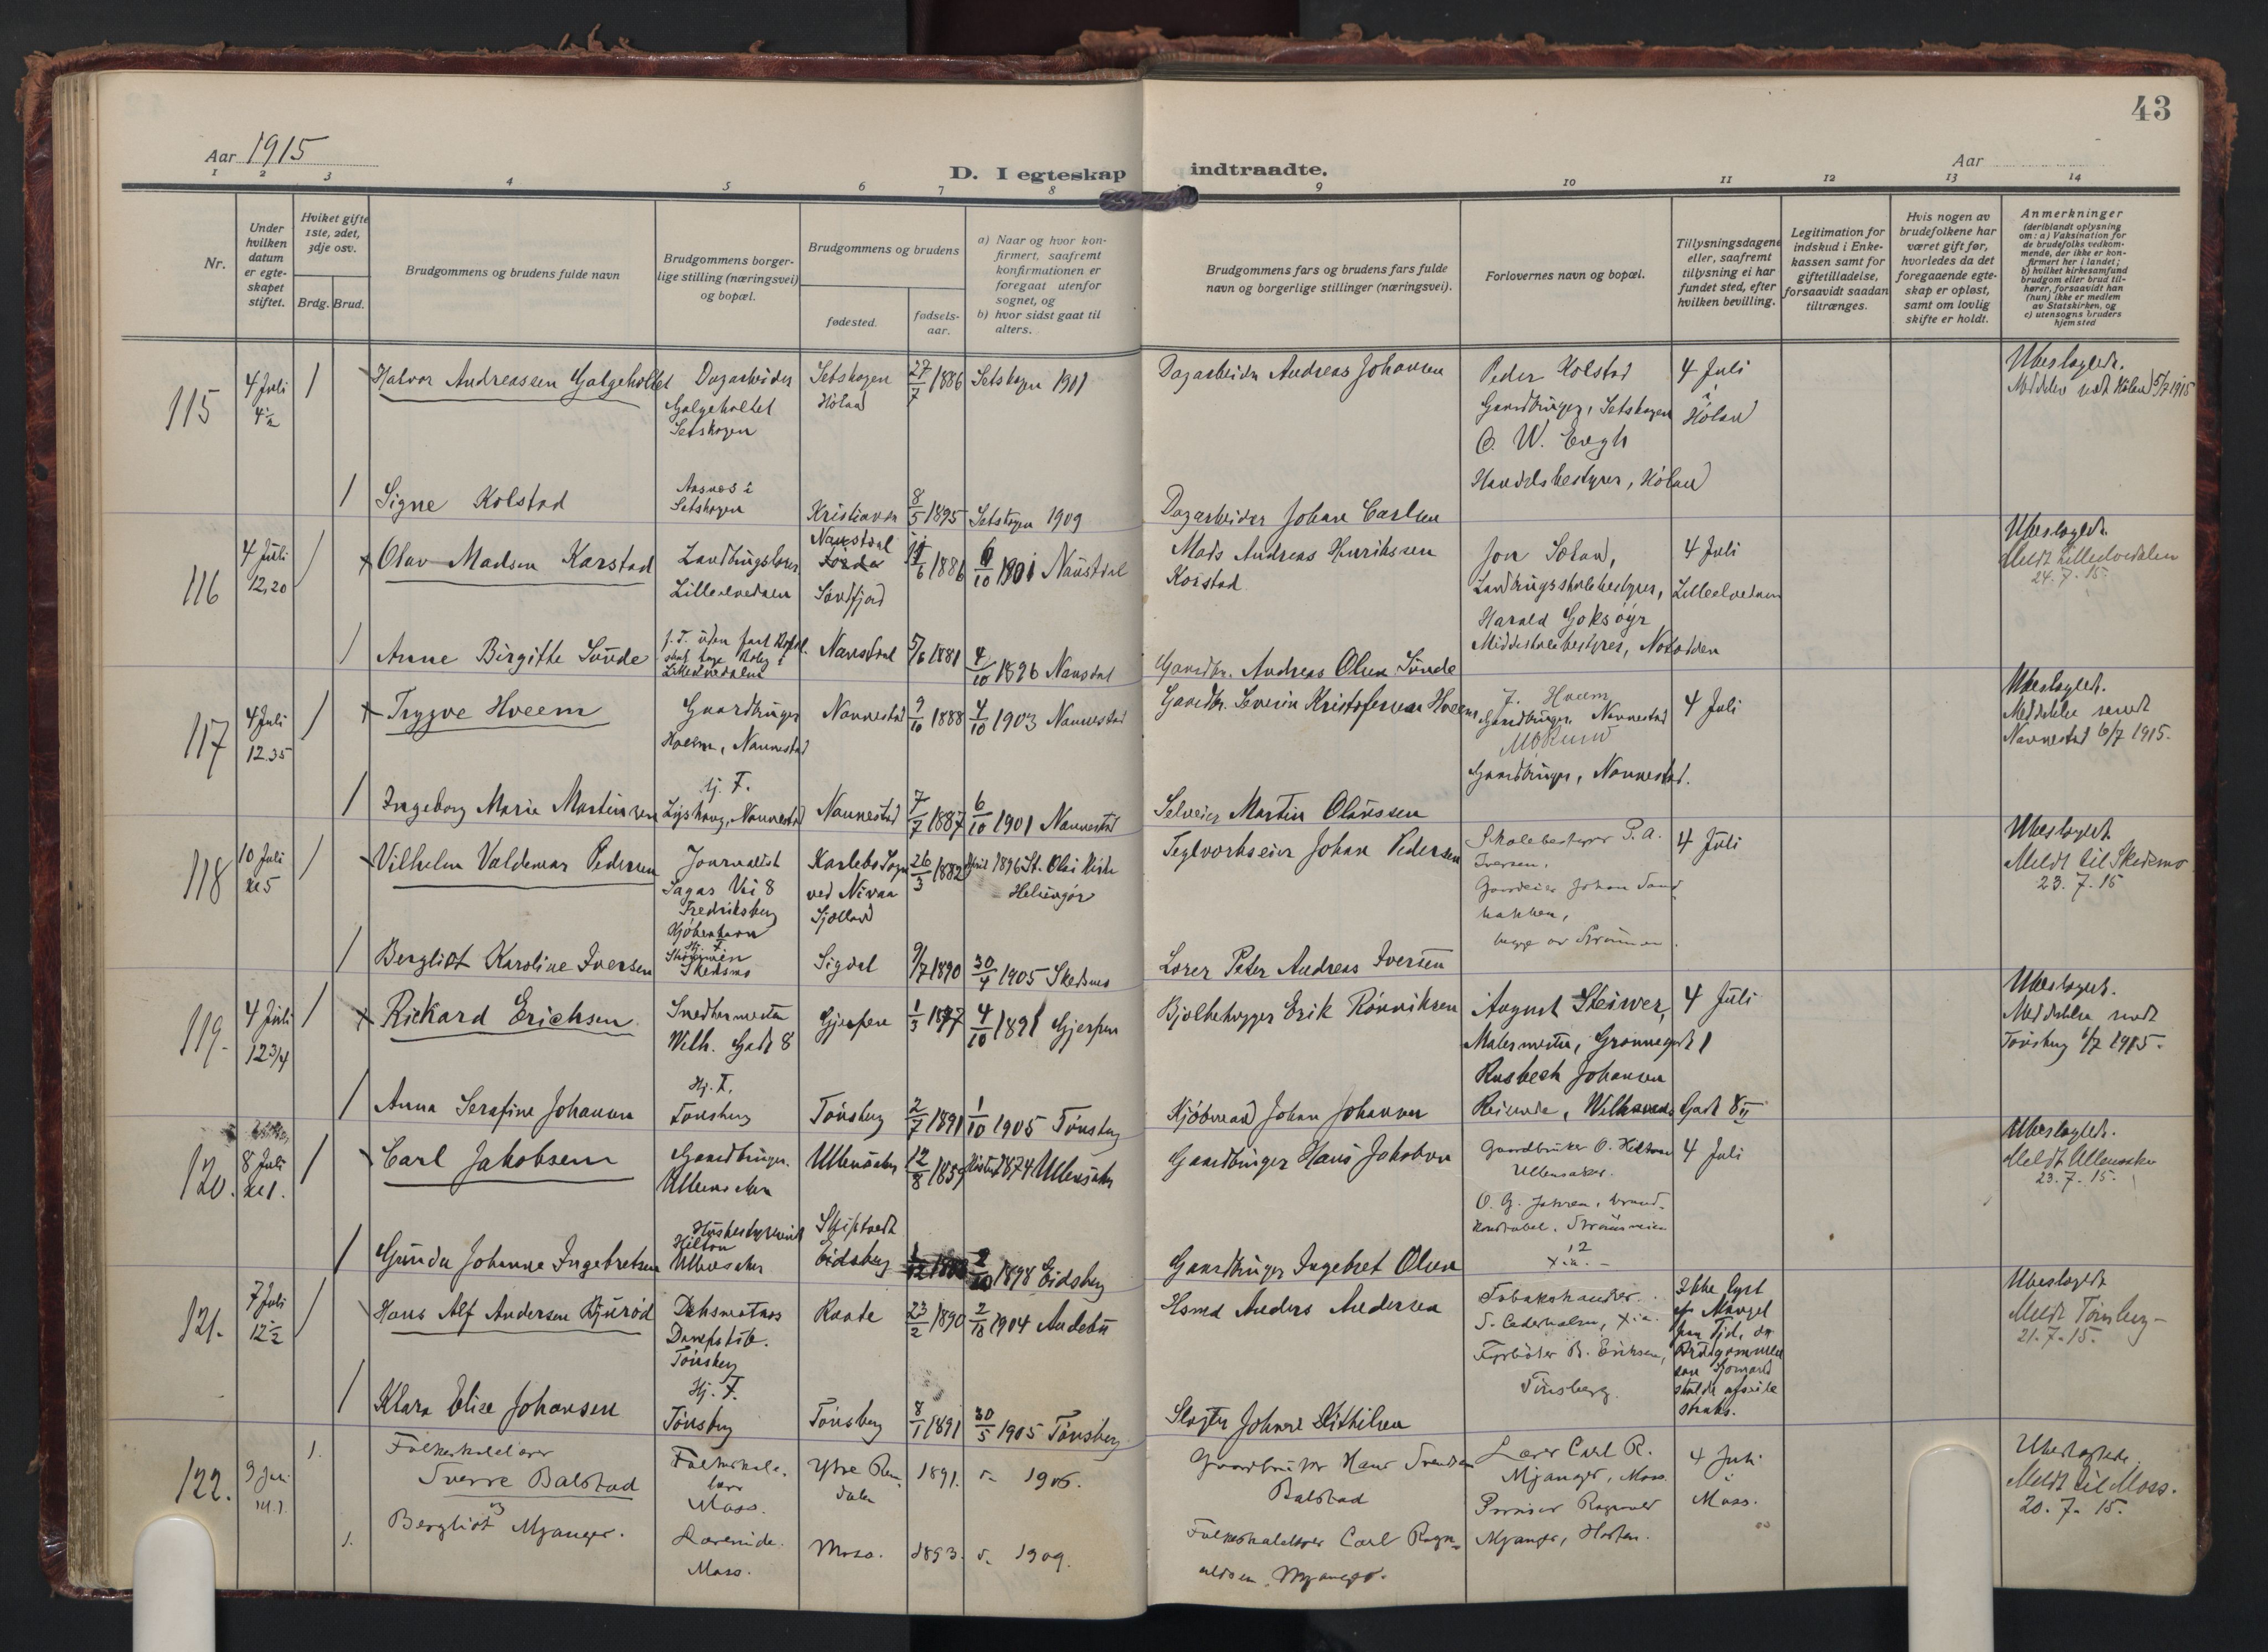 43
Aar 1915
D. I egteskap indtraadte.
Aar
1 2 3 4 5 6 7 8 9 10 11 12 13 14
Nr.
Under hvilken datum er egteskapet stiftet.
Hviket gifte 1ste, 2det, 3dje osv.
Brdg. Brud.
Brudgommens og brudens fulde navn
Brudgommens borgerlige stilling (næringsvei) og bopæl.
Brudgommens og brudens
fødested.
fødsels-aar.
a) Naar og hvor konfirmert, saafremt konfirmationen er foregaat utenfor sognet, og
b) hvor sidst gaat til alters.
Brudgommens fars og brudens fars fulde navn og borgerlige stillinger (næringsvei).
Forlovernes navn og bopæl.
Tillysningsdagene eller, saafremt tillysning ei har fundet sted, efter hvilken bevilling.
Legitimation for indskud i Enkekassen samt for giftetilladelse, forsaavidt saadan tiltrænges.
Hvis nogen av brudefolkene har været gift før, hvorledes da det foregaaende egteskap er opløst, samt om lovlig skifte er holdt.
Anmerkninger (deriblandt oplysning om: a) Vaksination for de brudefolks vedkommende, der ikke er konfirmert her i landet; b) hvilket kirkesamfund brudgom eller brud tilhører, forsaavidt han (hun) ikke er medlem av Statskirken, og c) utensogns bruders hjemsted
115
4 Juli
4 1/2
1
Halvor Andreassen Galgeholtet
Dagarbeider
Galgeholtet
Setskogen
Setskogen
Høland
27/7 1886
Setskogen 1901
Dagarbeider Andreas Johansen
Peder Kolstad
Gaardbruger, Setskogen
O. W. Engh
Handelsbestyrer, Høland
4 Juli
i
Høland
Ubeslegtede.
Meddelelse sendt Høland 5/7 1915
1
Signe Kolstad
Aasnes i
Setskogen
Kristiania
8/5 1895
Setskogen 1909
Dagarbeider Johan Carlsen
116
4 Juli
12,20
1
Olav Madsen Karstad
Landbrugslærer
Lilleelvedalen
Naustdal
Førde
Søndfjord
11/6 1886
6/10 1901 Naustdal
Mads Andreas Henrikssen
Karstad
Jon Soland,
Landbrugsskolebestyrer,
Harald Goksøyr
Middelskolebestyrer, Notodden
4 Juli
Lilleelvedalen
Ubeslegtede.
Meldt Lilleelvedalen
24. 7. 15.
1
Anne Birgitte Sunde
Lilleelvedalen
Naustdal
5/6 1881
4/10 1896 Naustdal
Gaardbr. Andreas Olsen Sunde
117
4 Juli
12.35
1
Trygve Hveem
Gaardbruger
Hveem, Nannestad
Nannestad
9/10 1888
4/10 1903 Nannestad
Gaardbr. Severin Kristofersen Hveem
J. Hveem
Gaardbruger Nannestad
Gaardbruger, Nannestad.
4 Juli
Ubeslegtede.
Meddelelse sendt
Nannestad 6/7 1915.
1
Ingeborg Marie Martinsen
Hj. F.
Nannestad
Nannestad
7/7 1887
6/10 1901 Nannestad
Selveier Martin Olaussen
118
10 Juli
kl 5
1
Vilhelm Valdemar Pedersen
Journalist
Sagas Vei 8
Fredriksberg
Kjøbenhavn
Karlebo Sogn
ved Nivaa
Sjælland
26/3 1882
April 1896 St. Olai Kirke
Helsingør
Teglverkseier Johan Pedersen
Skolebestyrer P. A.
Iversen.
Gaardeier Johan Sand-
bakken,
begge av Strømmen.
4 Juli
Ubeslegtet.
Meldt til Skedsmo
23. 7. 15
1
Bergliot Karoline Iversen
Hj. F.
Skedsmo
Sigdal
9/7 1890
30/4 1905 Skedsmo
Lærer Peter Andreas Iversen
119.
4 Juli
12 3/4
1
Rickard Erichsen
Snedkermester
Wilh. Gade 8
Gjerpen
1/3 1877
4/10 1891 Gjerpen
Bjelkehugger Erik Rønniksen
August Steiwer,
Malermester, Grønnegade 1
Rusbech Johansen
Reisende, Wilhelms Gade 8 II
4 Juli
Ubeslegtet.
Meddelelse sendt
Tønsberg 6/7 1915.
1
Anna Serafine Johansen
Hj. F.
Tønsberg
Tønsberg
2/7 1891
1/10 1905 Tønsberg
Kjøbmand Johan Johansen
120.
8 Juli
kl 1.
1
Carl Jakobsen
Gaardbruger.
Ullensaker
Ullensaker
12/8 1859
Høsten 1874 Ullensaker
Gaardbruger Hans Jakobsen
Gaardbruker O. Heltom
Ullensaker.
O. G. Jahren, brand-
konstabel, Strømsveien
12
X.ia.
4 Juli
Ubeslegtede.
Meldt Ullensaker
23. 7. 15.
1
Gunda Johanne Ingebretsen
Husbestyrerinde
Hilton
Ullensaker
Skiptvedt
Eidsberg
2/10 1898 Eidsberg
Gaardbruger Ingebret Olsen
121.
7 Juli
12 1/2
1
Hans Alf Andersen Bjurød
Dæksmatros
Tønsberg
Ramnes
23/2 1890
2/10 1904 Andebu
Hsmd Anders Andersen
Tobakshandler
S. Cederholm, X.ia.
Fyrbøter B. Eriksen,
Tønsberg.
Ikke lyst
af Mangel
paa Tid, da
Brudgommen
som Sjømand
skulde afseile
straks.
Ubeslegtede
Meldt Tønsberg
21. 7. 15.
1
Klara Elise Johansen
Hj. F.
Tønsberg
Tønsberg
8/1 1891
30/5 1905 Tønsberg
Slagter Johan Mathilsen
122.
9 Juli
kl. 1
1.
Folkeskolelærer
Sverre Balstad
Folkeskole-
lærer
Moss.
Ytre Ren-
dalen
1891.
1906.
Gaardbruker Hans Svendsen
Balstad
Lærer Carl R.
Mjanger, Moss.
Ragnvald
Mjanger, Horten.
4 Juli
i
Moss.
Ubeslegtede
Meldt til Moss.
20. 7. 15.
1.
Bergliot Mjanger.
Lærerinde.
Moss.
Moss.
1893.
1909.
Folkeskolelærer Carl Ragn-
valdsen Mjanger.